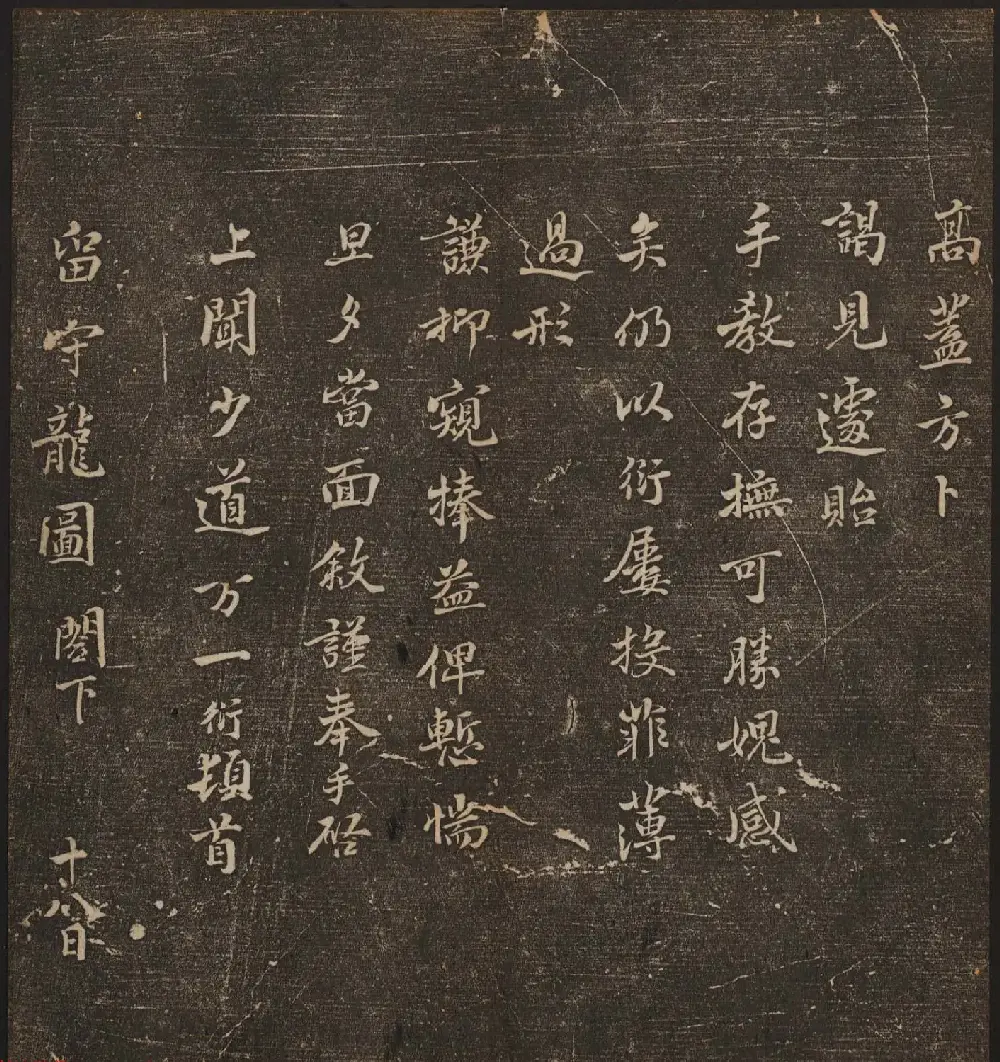 髙蓋方卜
謁見遽貽
手教存撫可勝媿感
矣仍以衍屢投菲薄
過形
謙抑窺捧益俾慙惴
旦夕當面敘謹奉手啓
上聞少道万一衍頓首
留守龍圖閣下 十八日